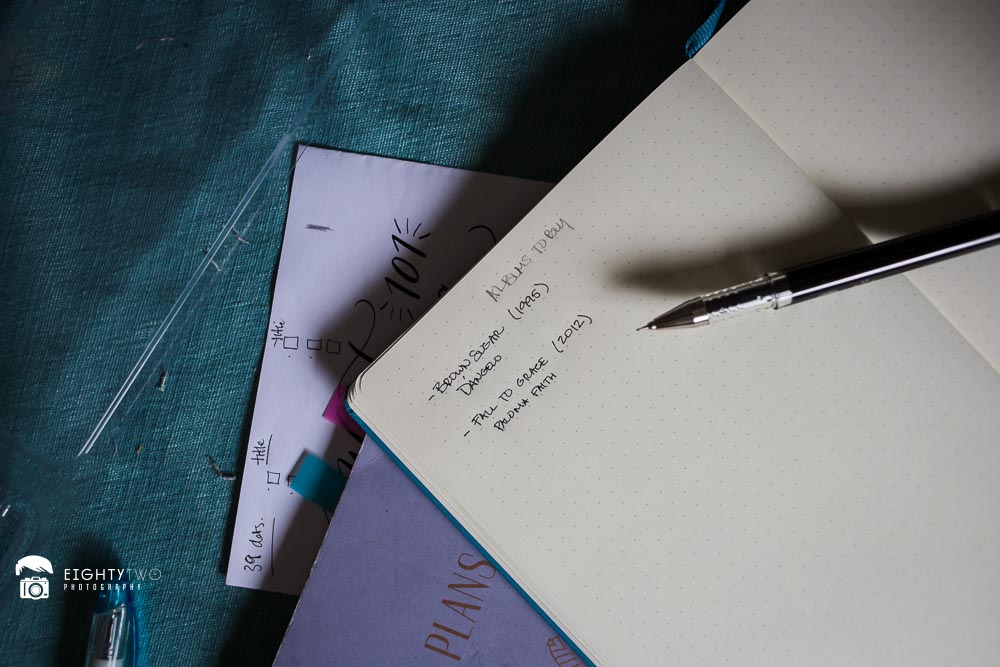 ALBUMS TO BUY
- BROWN SUGAR (1995)
D'ANGELO
- FALL TO GRACE (2012)
PALOMA FAITH
101
title
title
39 dots.
PLANS
EIGHTYTWO
PHOTOGRAPHY